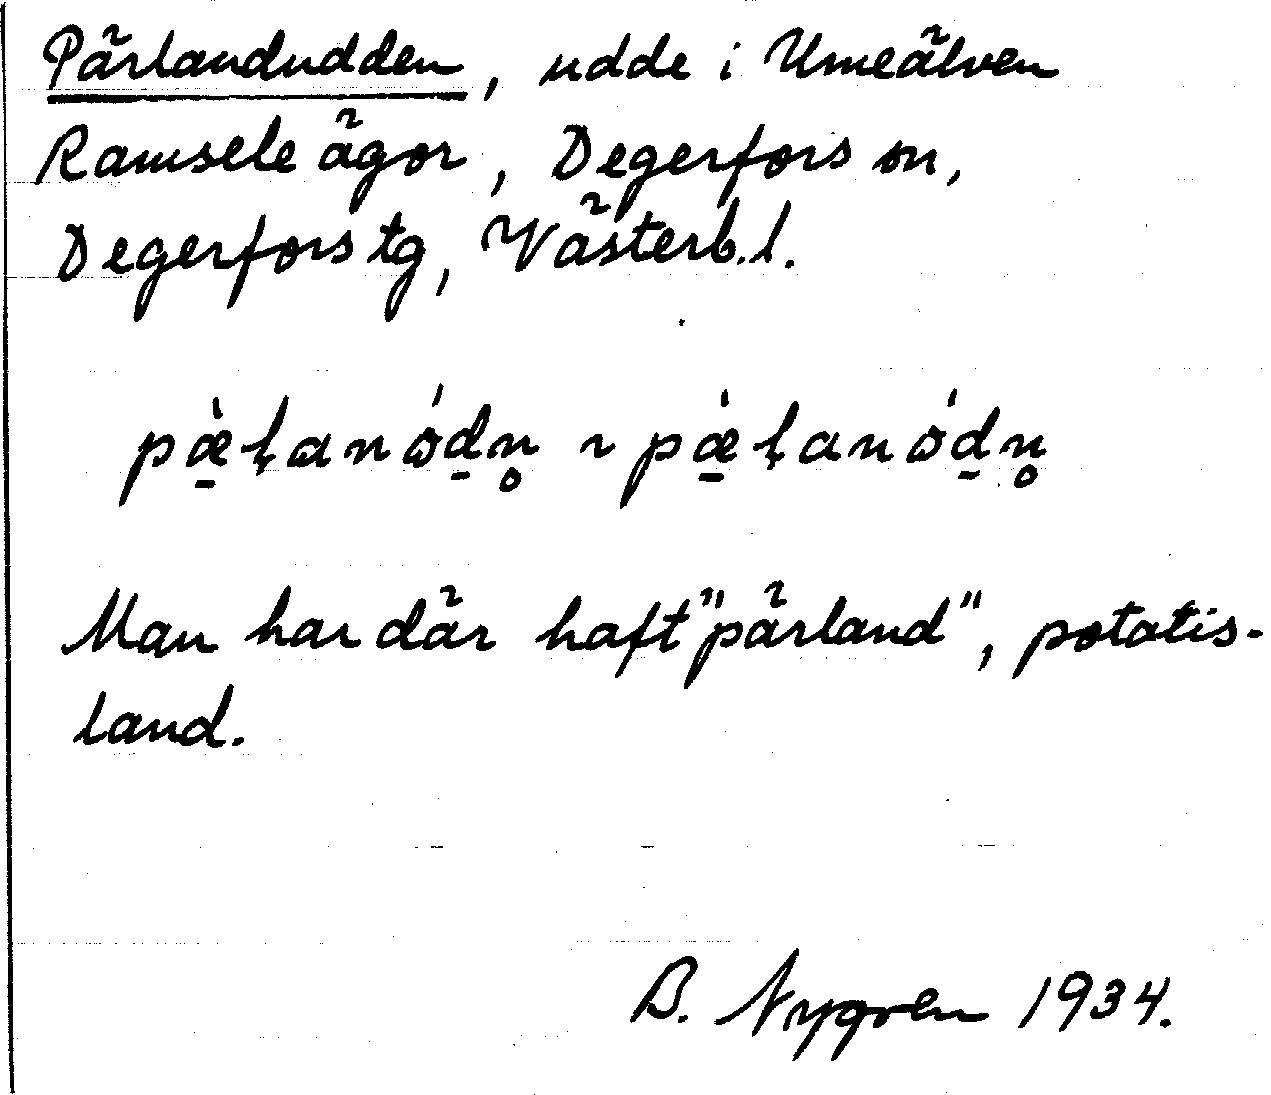 Pärlandudden, udde i Umeälven
Ramsele ägor, Degerfors sn,
Degerfors tg, Västerb.l.
pæ̠̀ḷanód̠n̥ ~ pæ̠̀ḷanód̠n̥
Man har där haft "pärland", potatis-
land.
B. Nygren 1934.